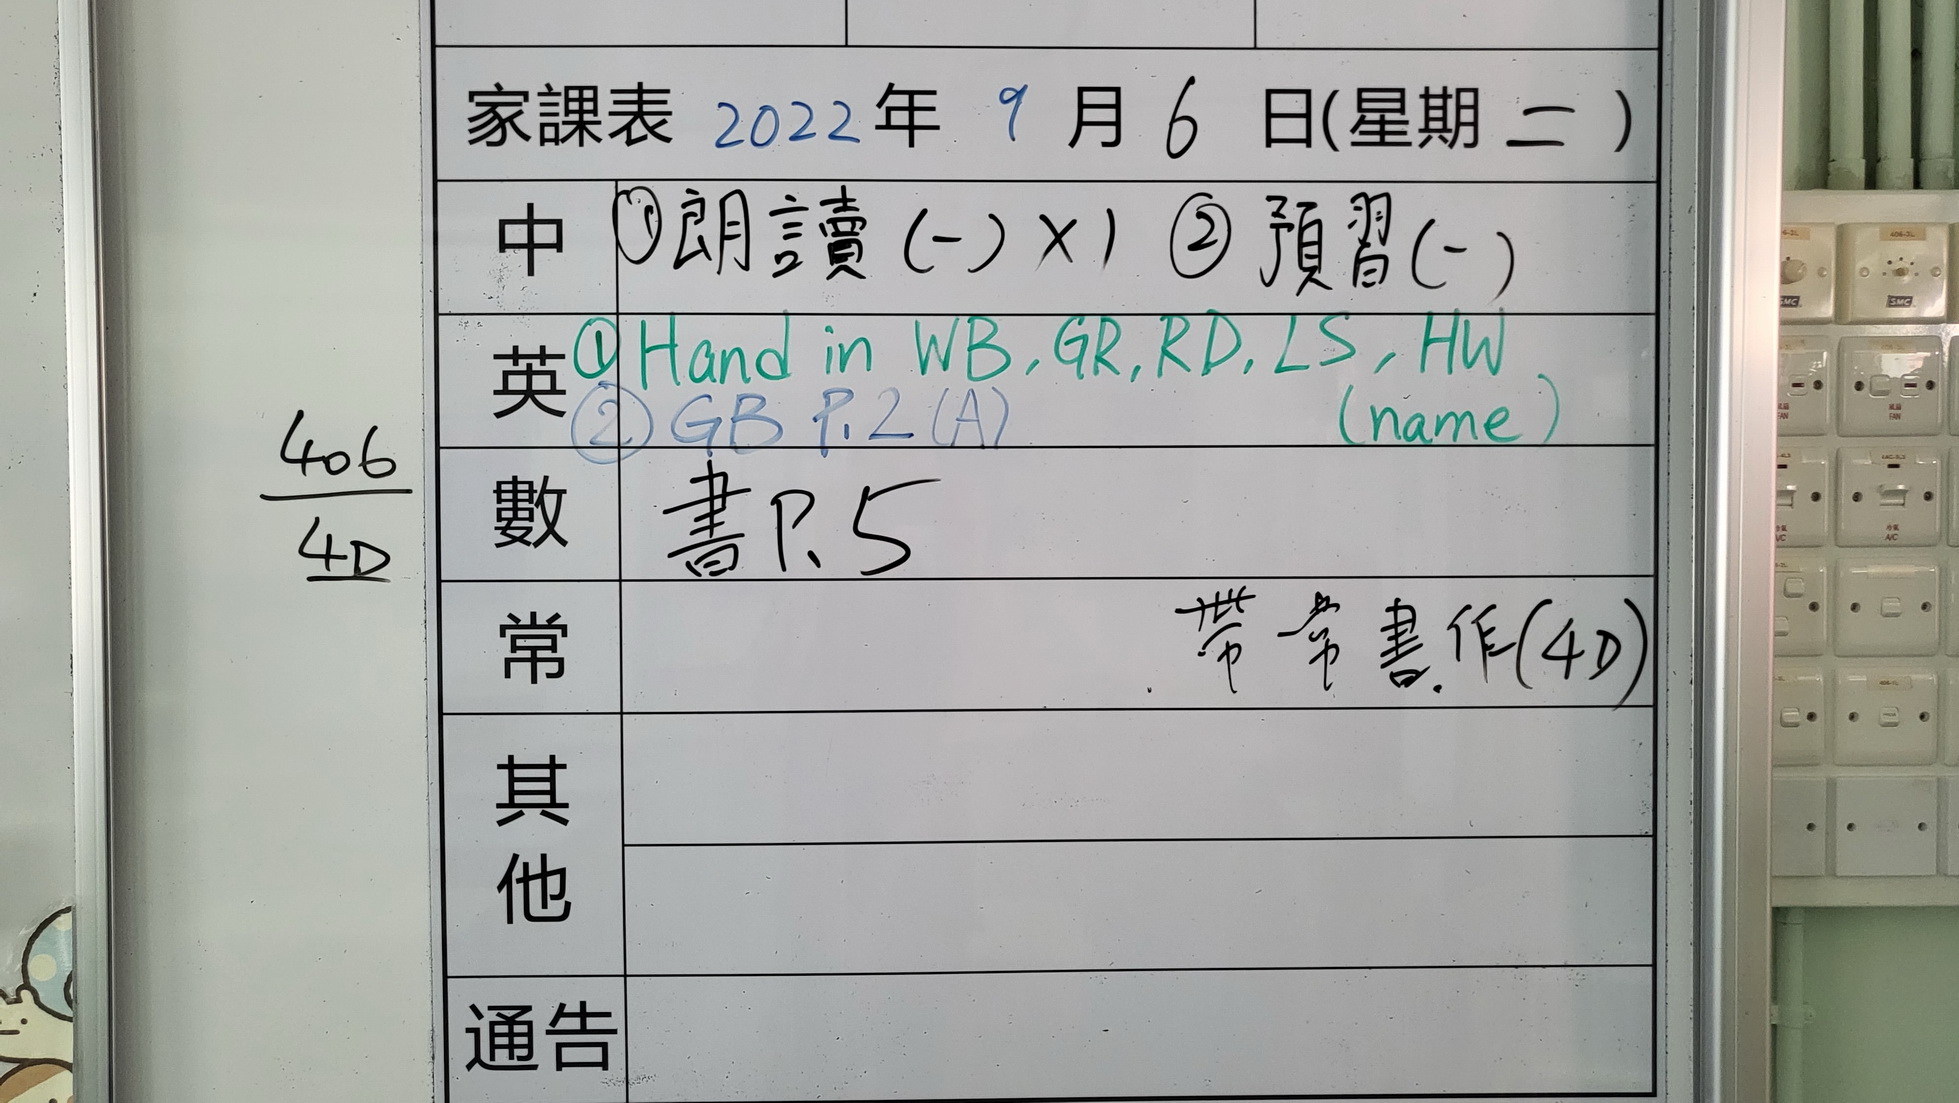 家課表 2022年 9月 6 日(星期二)
中 ①朗讀(一)×1 ②預習(一)
英 ①Hand in WB, GR, RD, LS, HW
②GB P.2(A) (name)
406
4D
數 書P.5
常 帶常書.作(4D)
其他
通告
SMC
SMC
FAN
FAN
A/C
A/C